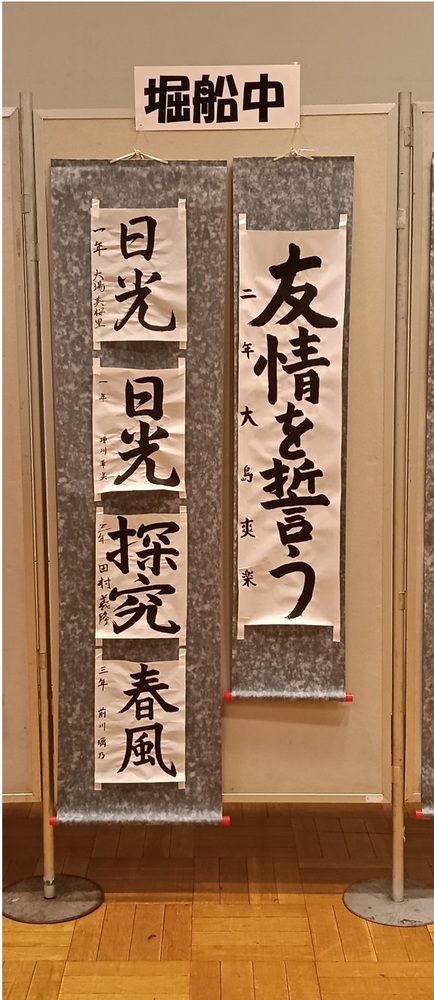 堀船中
友情を誓う
二年 大島爽楽
日光
一年
日光
一年
探究
田村義隆
春風
三年 前川璃乃